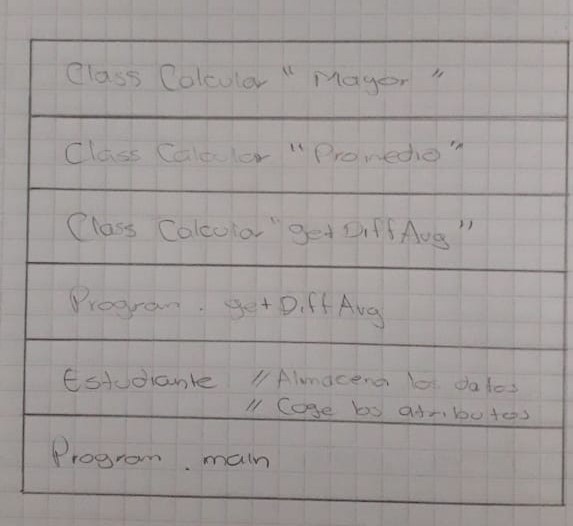 Class Calcular " Mayor "
Class Calcular "Promedio"
Class Calcular "getDiffAvg"
Program . getDiffAvg
Estudiante // Almacena los datos
// Coge los atributos
Program . main